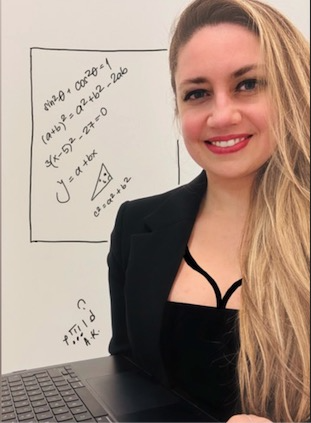 sin²θ + cos²θ = 1
(a+b)² = a² + b² - 2ab
3(x-5)² - 27 = 0
y = a + bx
c² = a² + b²
A.K.